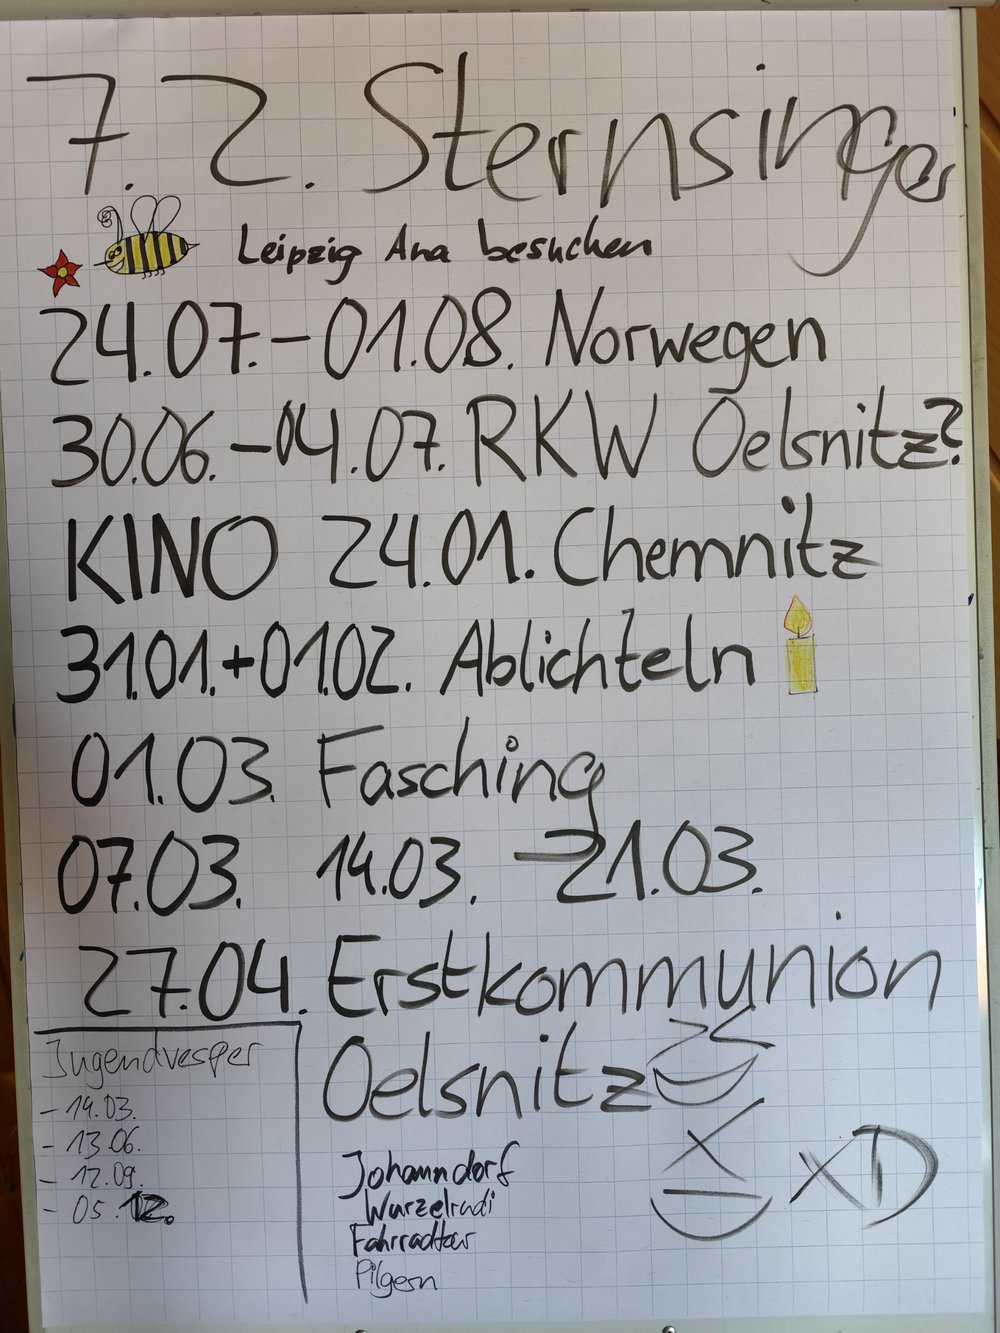 7.2. Sternsinger
Leipzig Ana besuchen
24.07.-01.08. Norwegen
30.06.-04.07. RKW Oelsnitz?
KINO 24.01. Chemnitz
31.01.+01.02. Ablichteln
01.03. Fasching
07.03. 14.03. -21.03.
27.04. Erstkommunion
Oelsnitz
Jugendvesper
- 14.03.
- 13.06.
- 12.09.
- 05.12.
Johanndorf
Wurzelrudi
Fahrradtour
Pilgern
XD